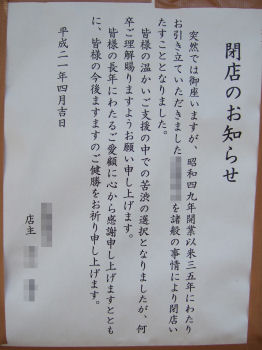 閉店のお知らせ
突然では御座いますが、昭和四九年開業以来三五年にわたり
お引き立ていただきました
を諸般の事情により閉店い
たすこととなりました。
皆様の温かいご支援の中での苦渋の選択となりましたが、何
卒ご理解賜りますようお願い申し上げます。
皆様の長年にわたるご愛顧に心から感謝申し上げますととも
に、皆様の今後ますますのご健勝をお祈り申し上げます。
平成二一年四月吉日
店主